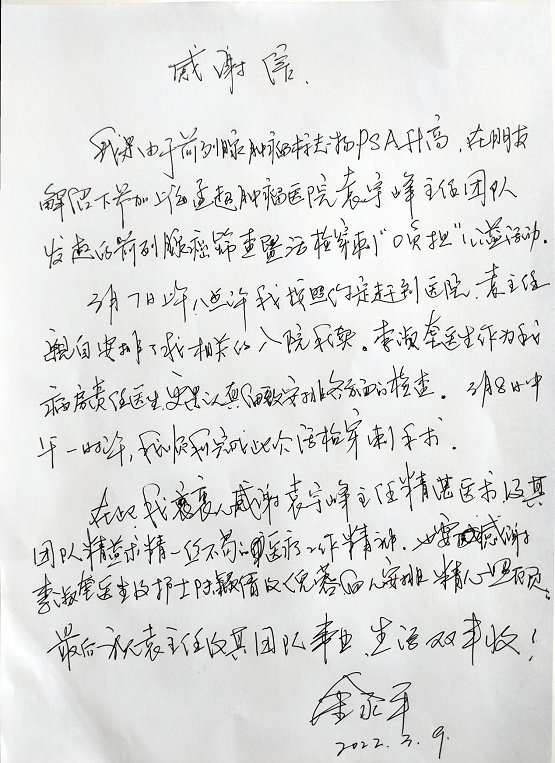 感谢信
我是由于前列腺肿瘤标志物PSA升高，在朋友
介绍下参加上海孟超肿瘤医院袁宇峰主任团队
发起的前列腺癌筛查暨活检穿刺“0负担”公益活动。
3月7日上午八点许我按照约定赶到医院，袁主任
亲自安排了我相关的入院手续。李淑奎医生作为我
病房责任医生，更是认真细致安排各方面的检查。3月8日中
午一时许，我顺利完成此次活检穿刺手术。
在此，我衷心感谢袁宇峰主任精湛医术及其
团队精益求精一丝不苟的医疗工作精神。也要感谢
医生及护士 安排精心照顾。
最后祝袁主任及其团队事业、生活双丰收！
2022.3.9.